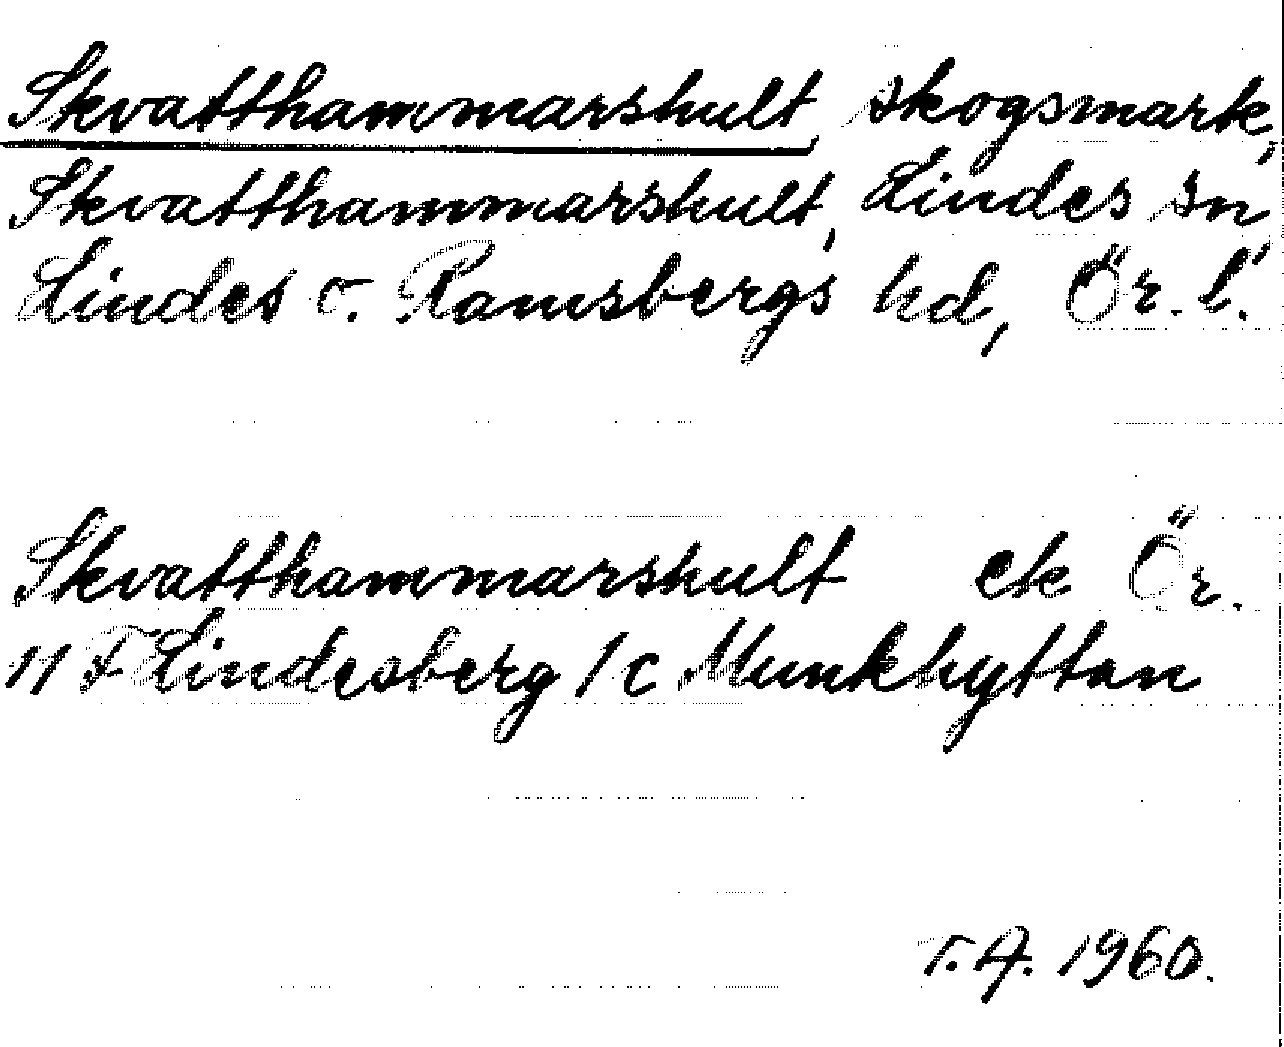 Skvatthammarshult, skogsmark,
Skvatthammarshult, Lindes sn,
Lindes o. Ramsbergs hd, Ör. l.
Skvatthammarshult ek Ör.
11 F Lindesberg / c Munkhyttan
T.A. 1960.